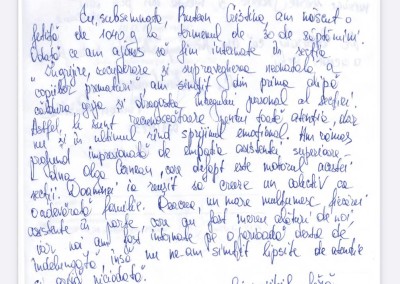 Eu, subsemnata, Cristina am născut o
fetiță de 1040 g la termenul de 30 de săptămâni.
Odată ce am ajuns să fim internate în secția
"Îngrijire, recuperare și supraveghere neonatală a
copiilor prematuri" am simțit din prima clipă
căldura și dragostea întregului personal al secției.
Astfel, le sunt recunoscătoare pentru toată atenția, dar
nu și în ultimul rând sprijinul emoțional. Am rămas
profund impresionată de empatia asistentei superioare -
dna Olga, care defapt este motorul acestei
secții. Dumneaei a reușit să creeze un colectiv ca
o adevărată familie. Deaceea, un mare mulțumesc fiecărei
asistente în parte care au fost mereu alături de noi,
iar noi am fost internate pe o perioadă destul de
îndelungată, însă nu ne-am simțit lipsite de atenție
și niciodată.